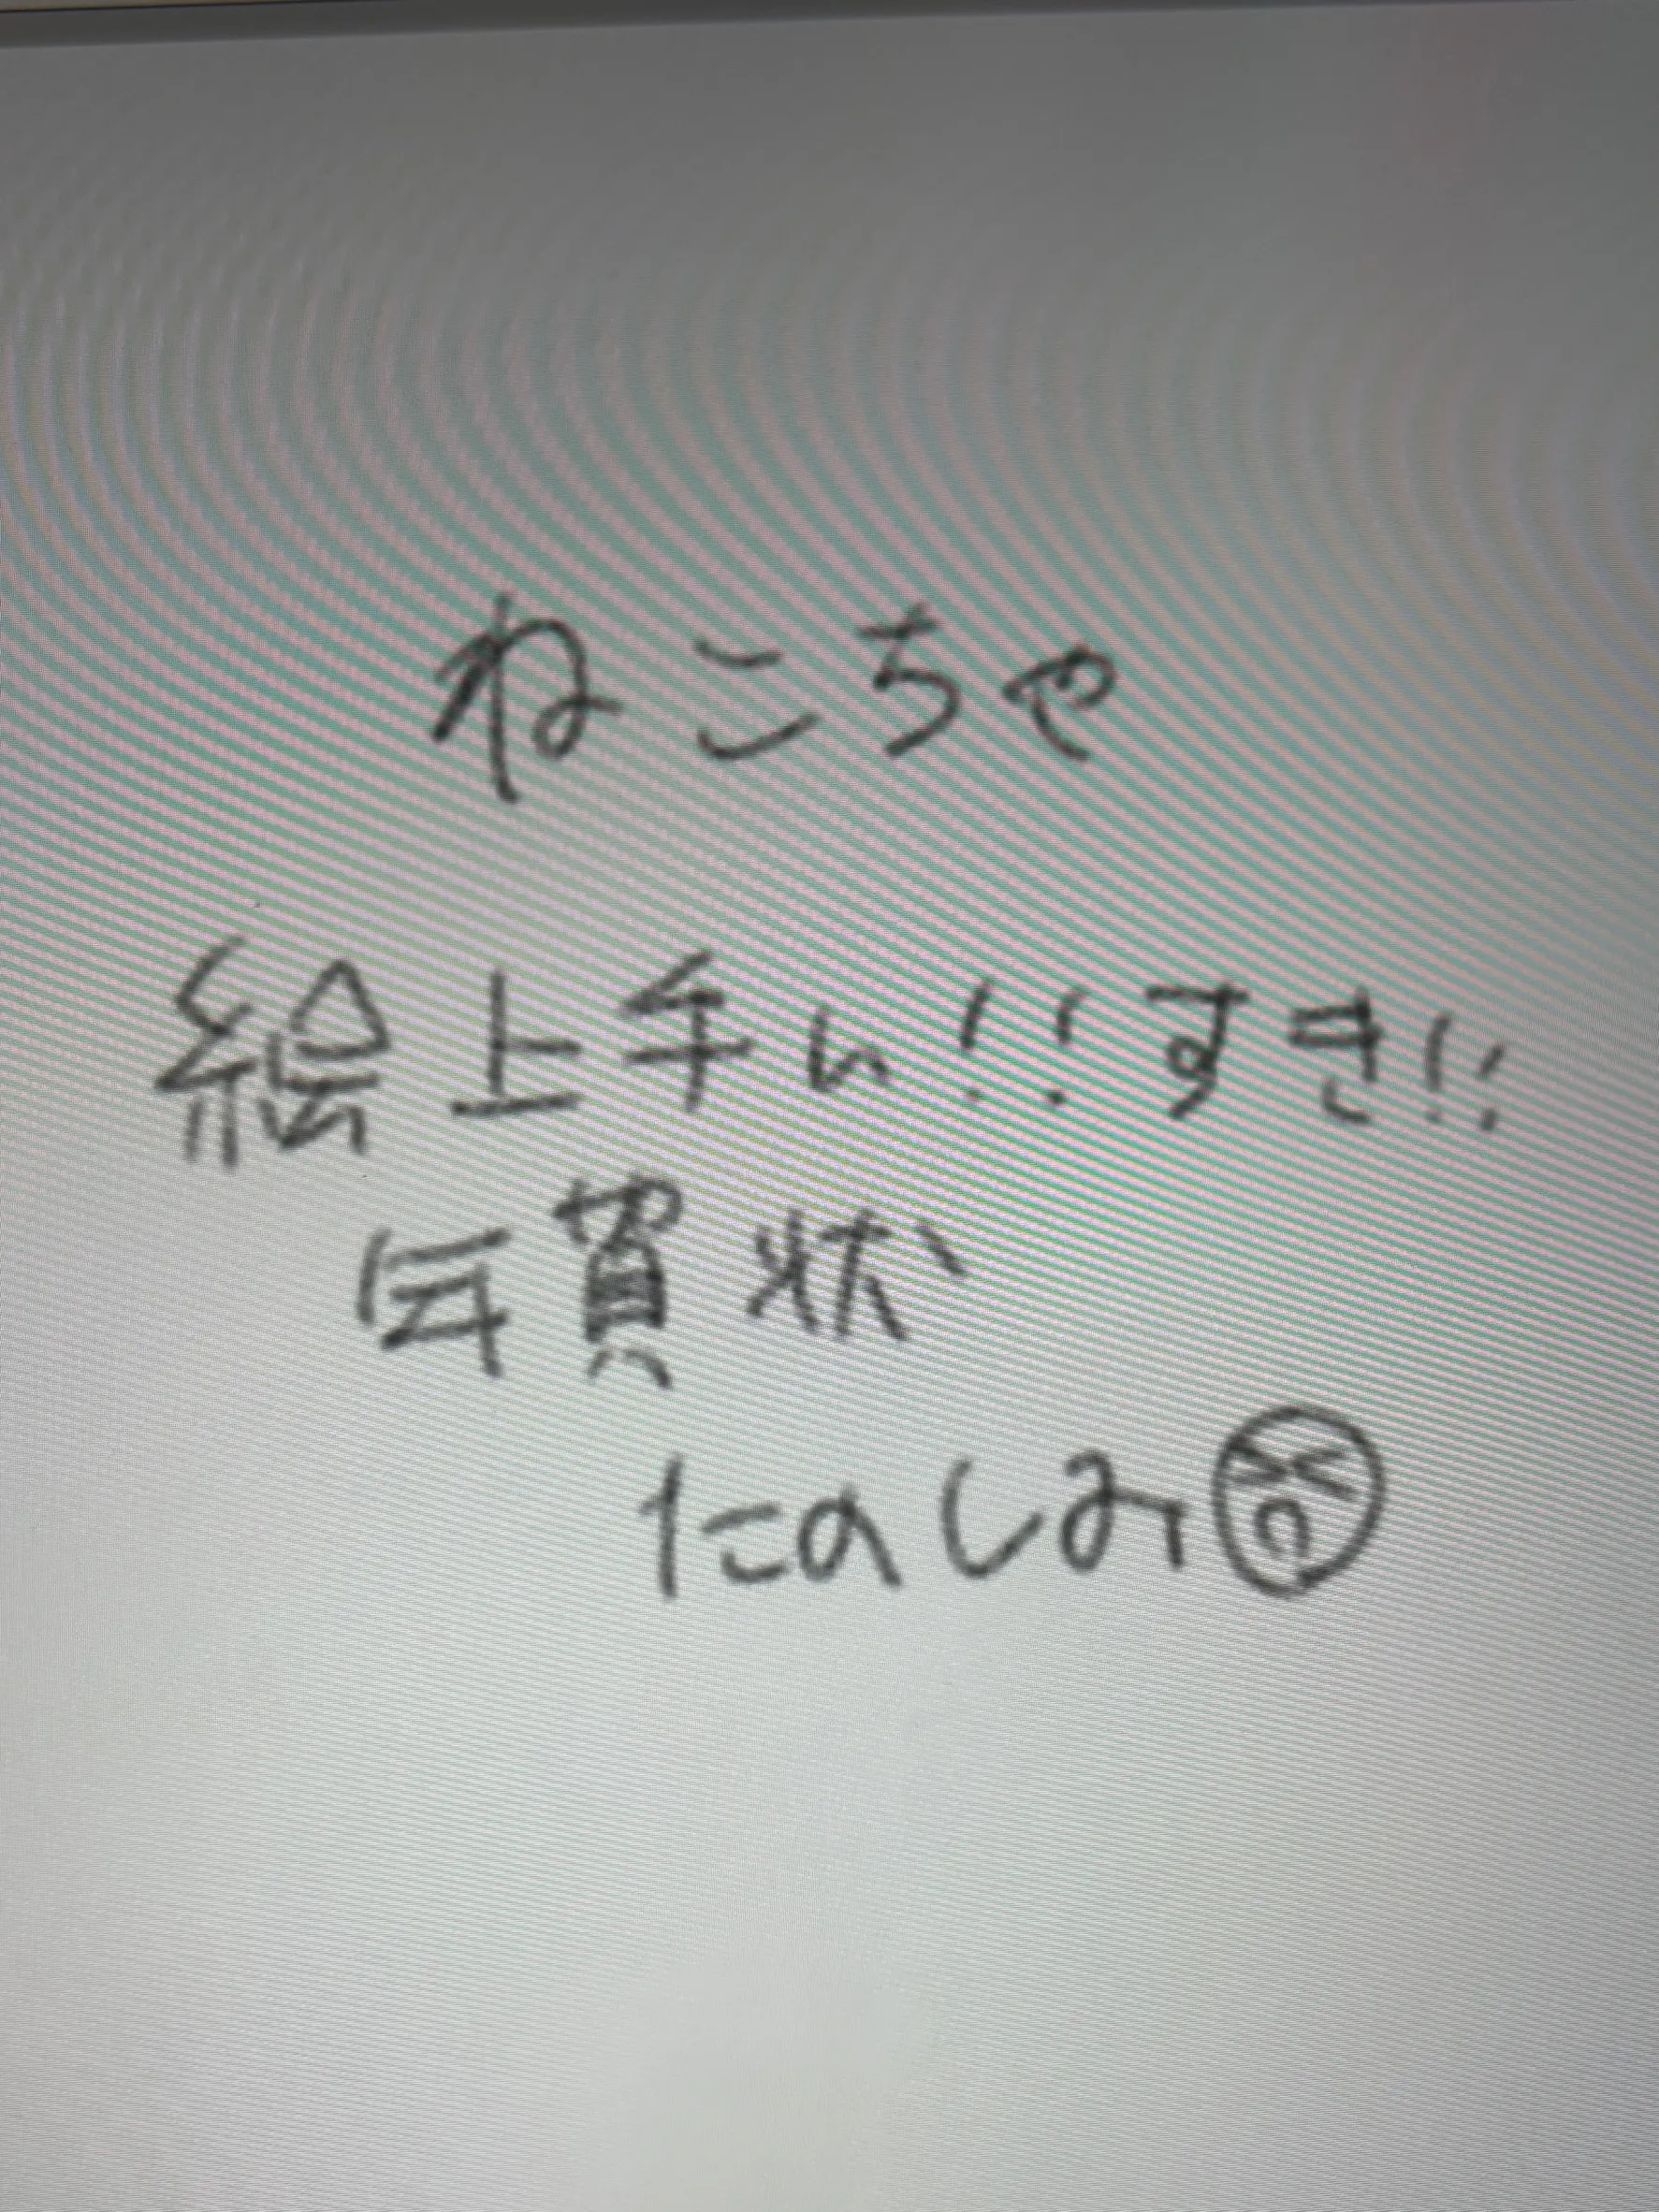 ねこちゃ
絵上手い!!すき!!
年賀状
たのしみ